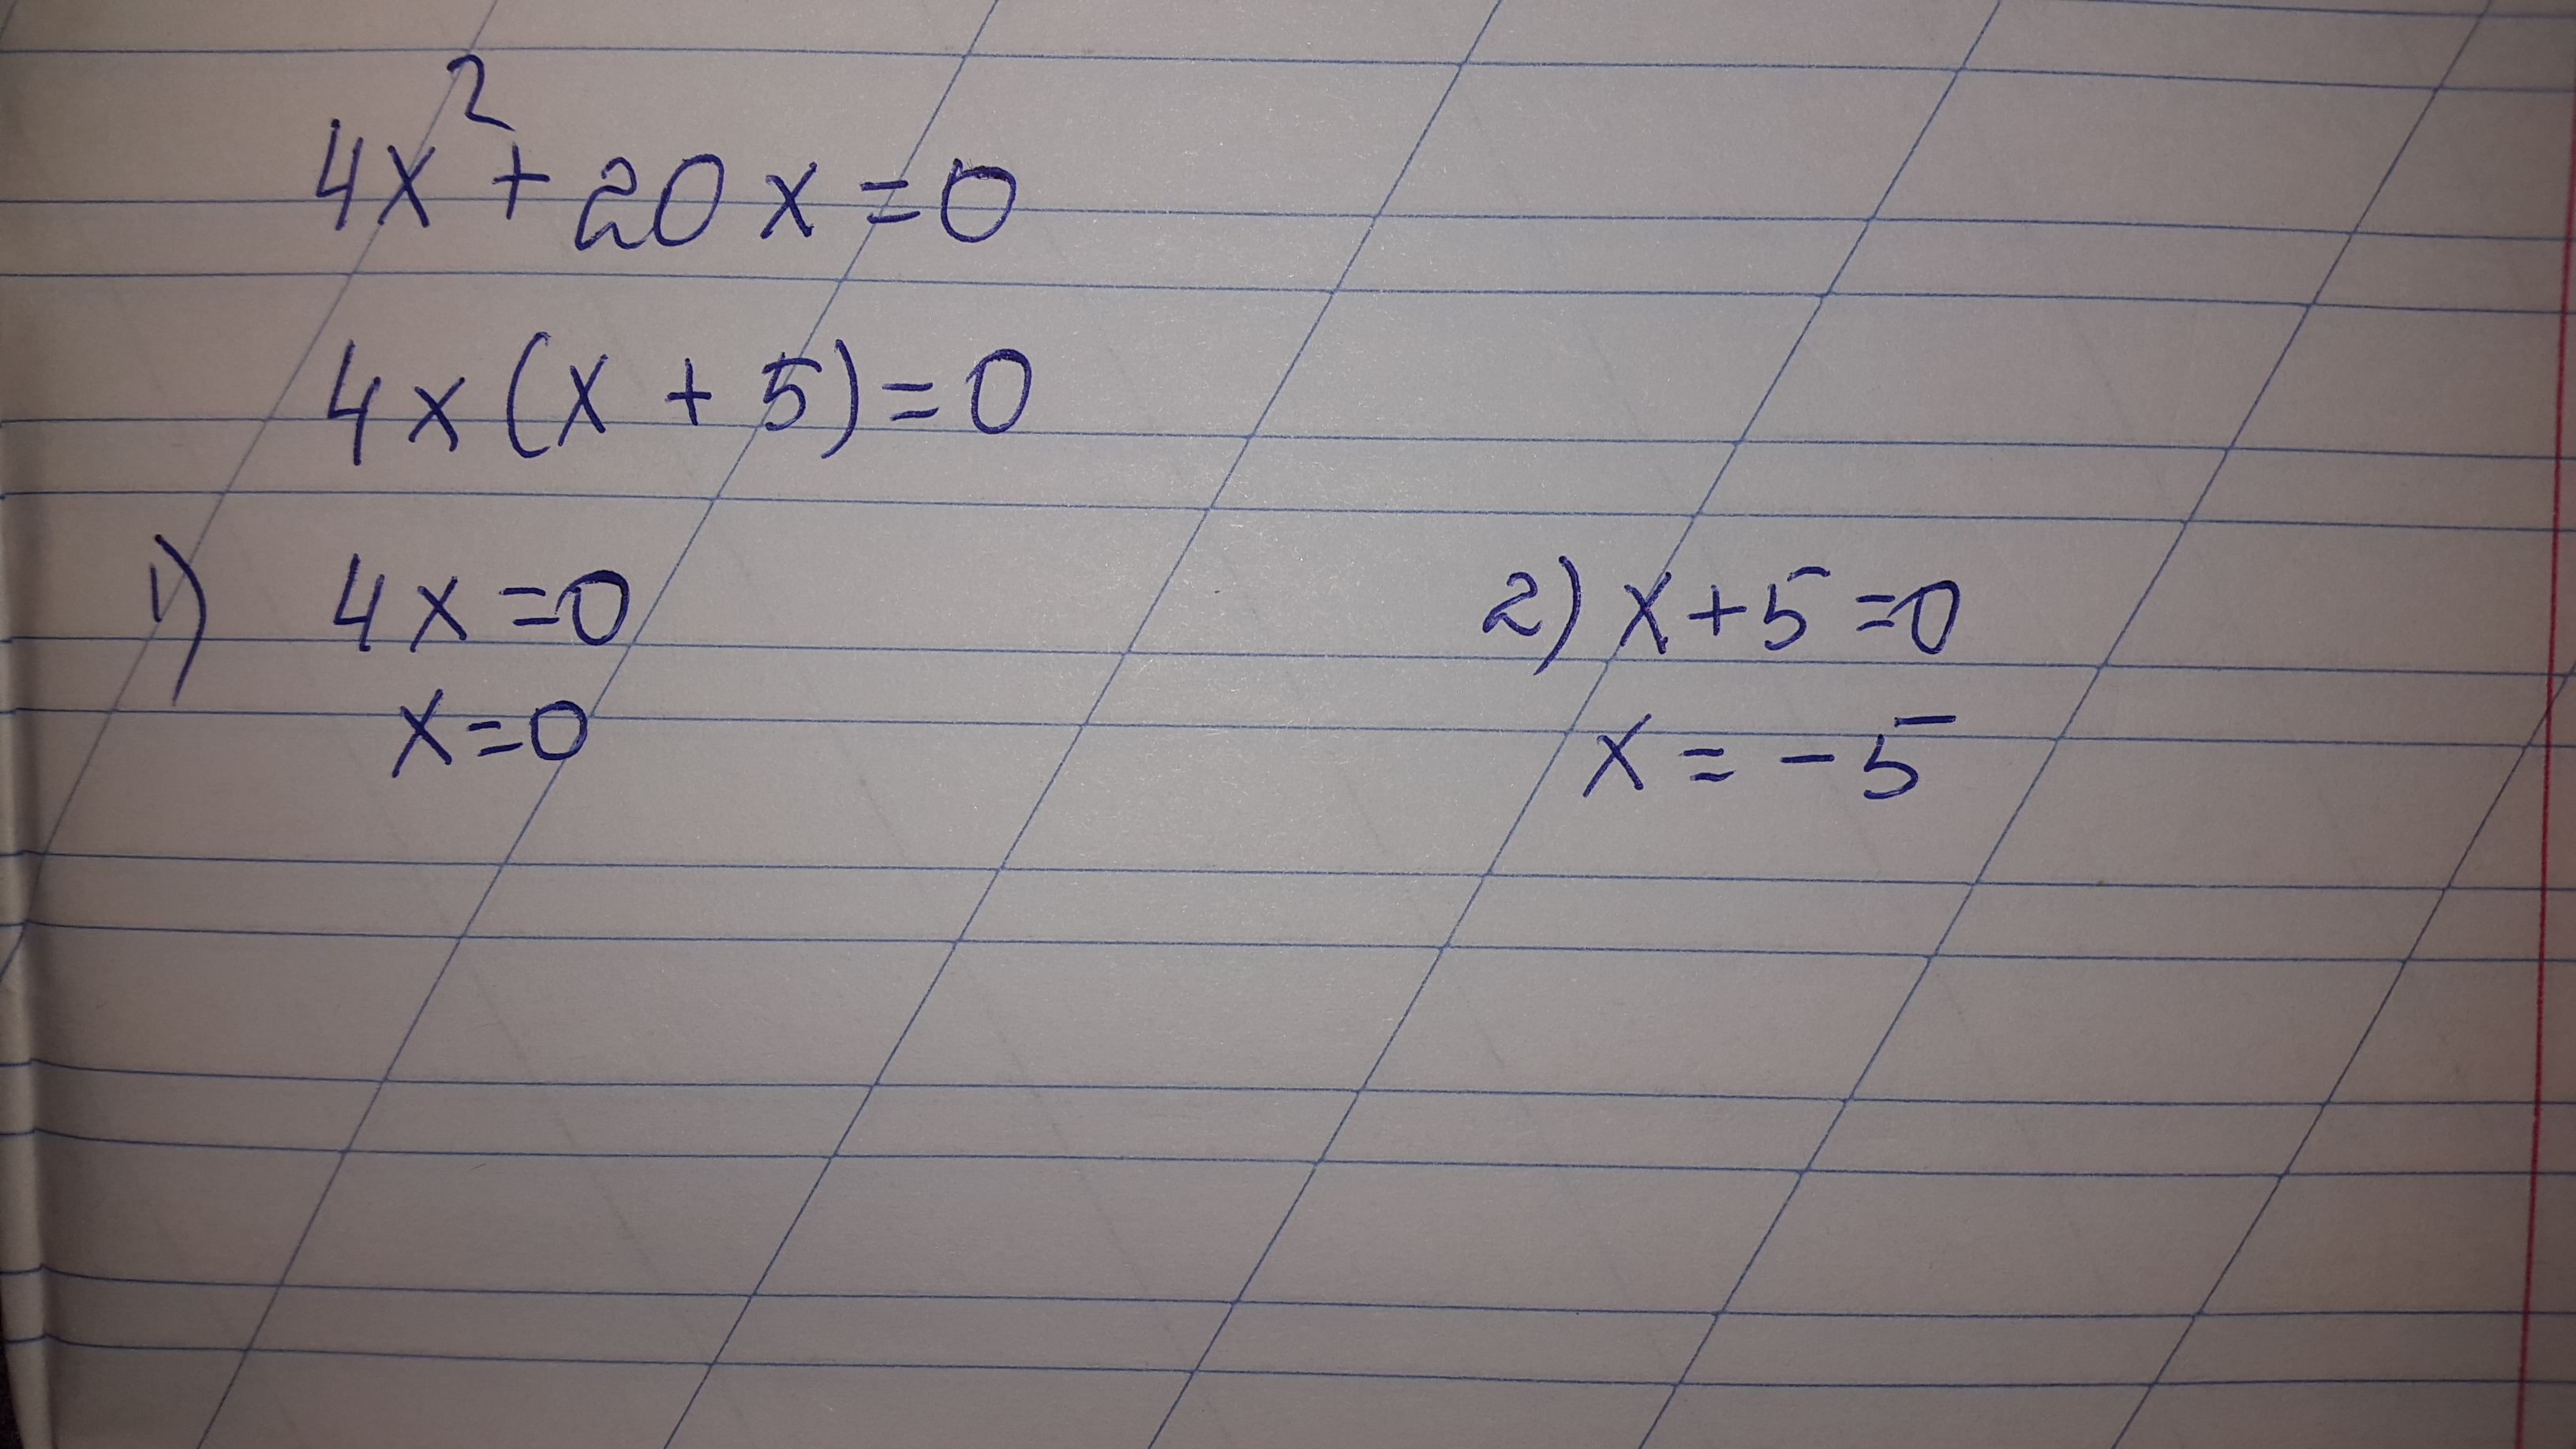 4x²+20x=0
4x(x+5)=0
1) 4x=0
x=0
2) x+5=0
x=-5